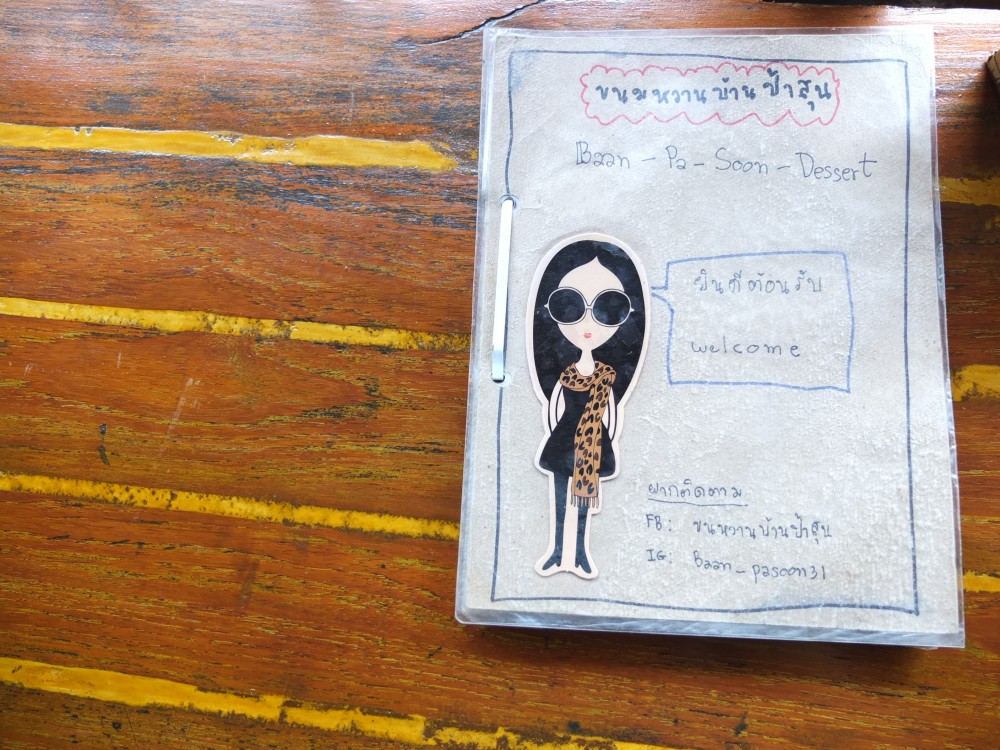 ขนมหวานบ้านป้าสุน
Baan - Pa - Soon - Dessert
ยินดีต้อนรับ
welcome
ฝากติดตาม
FB: ขนหวานบ้านป้าสุน
IG: Baan_pasoon31